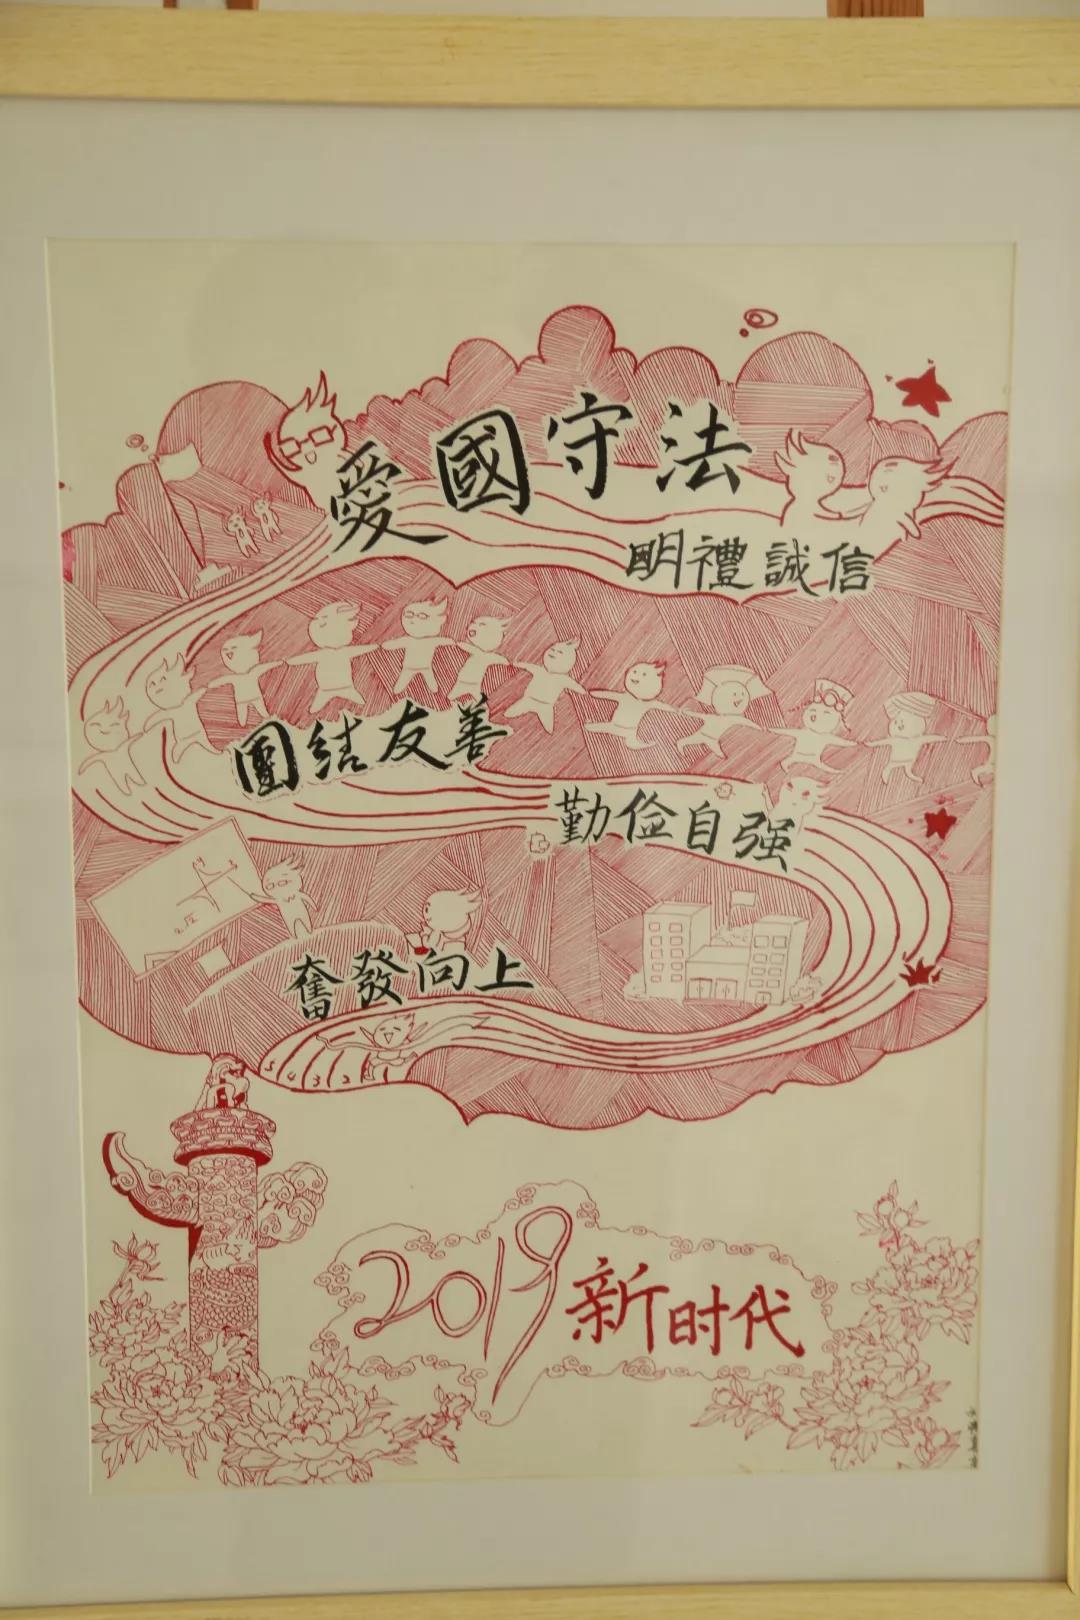 愛國守法
明禮誠信
團結友善
勤俭自强
奮發向上
5 4 3 2
2019新时代